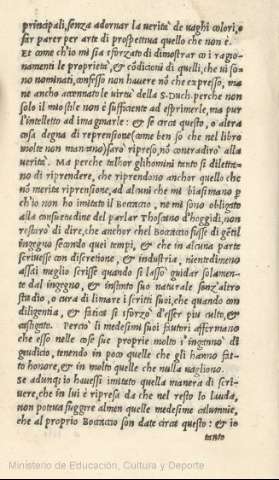 principali, senza adornar la uerità de uaghi colori, o
far parer per arte di prospettiua quello che non è.
Et come ch'io mi sia sforzato di dimostrar cō i ragio-
namenti le proprietà, et cōditioni di quelli, che ui so-
no nominati, confesso non hauere nō che espresso, ma
ne ancho accennate le uirtù della S. Duch. perche non
solo il mio stile non è sufficiente ad esprimerle, ma pur
l'intelletto ad imaginarle: et se circa questo, o altra
cosa degna di reprensione (come ben so che nel libro
molte non mancano) sarò ripreso, nō contradirò alla
uerità. Ma perche talhor gli homini tanto si diletta-
no di riprendere, che riprendono anchor quello che
nō merita riprensione, ad alcuni che mi biasimano p
ch'io non ho imitato il Boccaccio, ne mi sono obligato
alla consuetudine del parlar Thoscano d'hoggidi, non
restarò di dire, che anchor che'l Boccaccio fusse di gētil
ingegno secondo quei tempi, et che in alcuna parte
scriuesse con discretione, et industria, nientedimeno
assai meglio scrisse quando si lassò guidar solamen-
te dal ingegno, et instinto suo naturale senz'altro
studio, o cura di limare i scritti suoi, che quando con
diligentia, et fatica si sforzò d'esser piu culto, et
castigato. Perciò li medesimi suoi fautori affermano
che esso nelle cose sue proprie molto s'ingannò di
giudicio, tenendo in poco quelle che gli hanno fat-
to honore, et in molto quelle che nulla uagliono.
Se adunq; io hauessi imitato quella maniera di scri-
uere, che in lui è ripresa da chi nel resto lo lauda,
non poteua fuggire almen quelle medesime calumnie,
che al proprio Boccaccio son date circa questo: et io
tanto
Ministerio de Educación, Cultura y Deporte